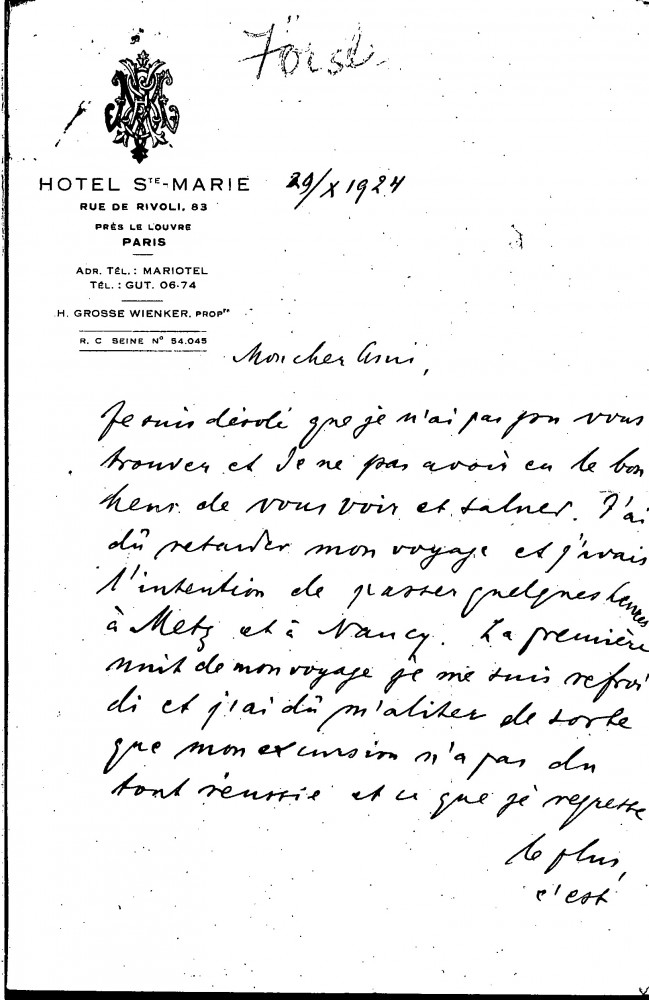 HOTEL STE-MARIE
RUE DE RIVOLI, 83
PRÈS LE LOUVRE
PARIS
ADR. TÉL.: MARIOTEL
TÉL.: GUT. 06-74
H. GROSSE WIENKER, PROPRE
R. C SEINE No 54.045
29/X 1924
Mon cher Ami,
Je suis désolé que je n'ai pas pu vous
trouver et de ne pas avoir eu le bon
heur de vous voir et saluer. J'ai
dû retarder mon voyage et j'avais
l'intention de passer quelques heures
à Metz et à Nancy. La première
nuit de mon voyage je me suis refroi
di et j'ai dû m'aliter de sorte
que mon excursion n'a pas du
tout réussie et ce que je regrette
le plus,
c'est